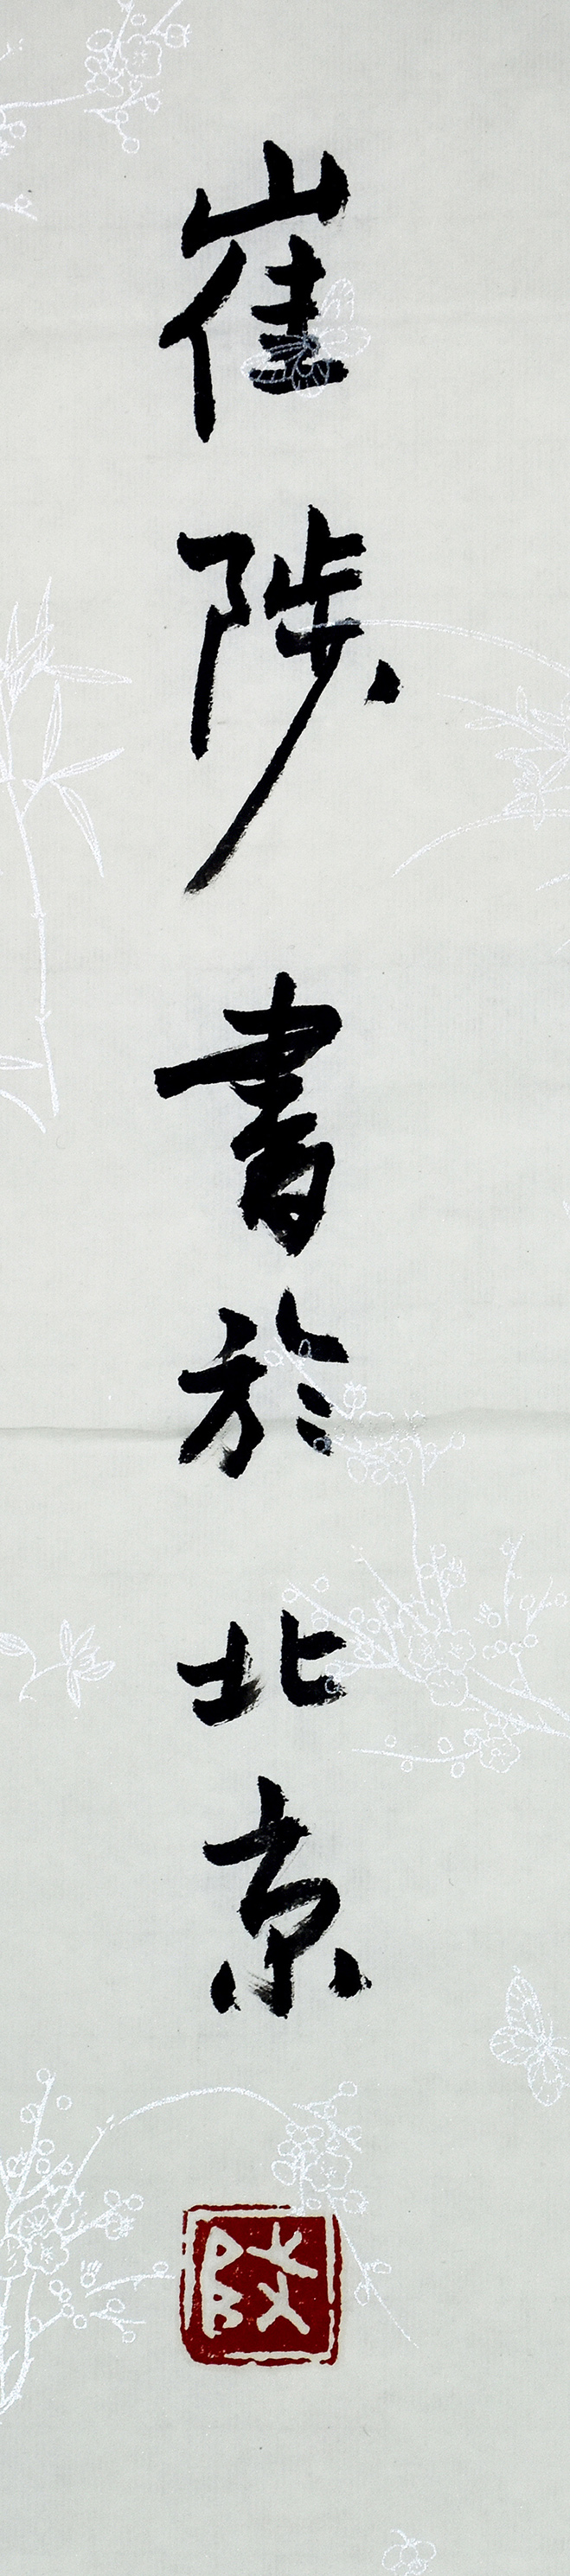 崔陟書於北京
陟